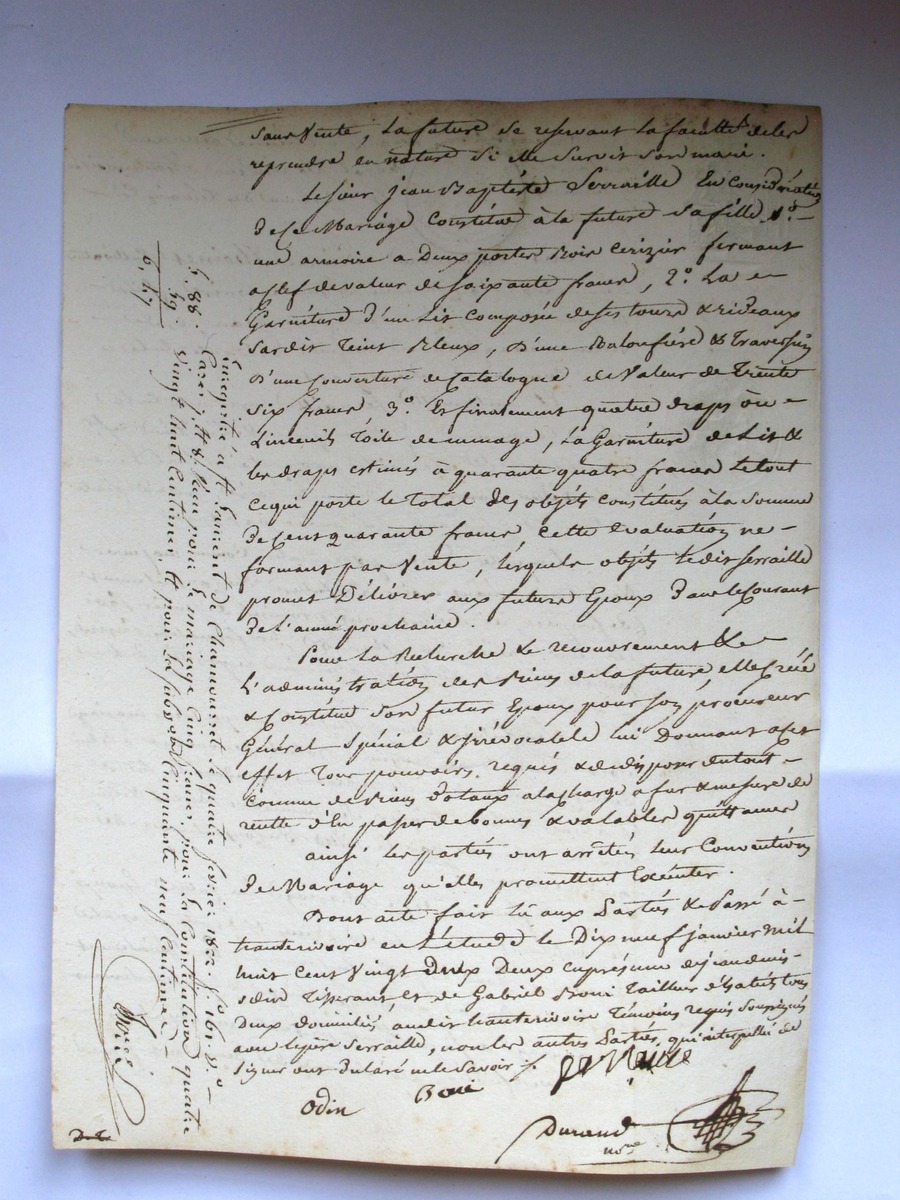 sans vente, La future se reservant la faculté de les
reprendre en nature si elle survit son mari.
Le sieur jean Baptiste Serraille En Consideration
de ce Mariage Constitue à la future sa fille 1.º
une armoire a Deux portes Bois Cerizier fermant
a clef de valeur de soixante francs, 2.º La
Garniture d'un Lit Composée de ses tours & rideaux
sardit teint Bleux, d'une & Traversin
d'une Couverture de Catalogue de Valeur de Trente
six francs, 3.º Et finalement quatre draps ou
Linceuils toile de menage, La Garniture de Lit &
les draps estimés à quarante quatre francs le tout
ce qui porte le total des objets Constitués à la somme
de Cent quarante francs, cette Evaluation ne
formant pas Vente, lesquels objets ledit Serraille
promet Délivrer aux futurs Epoux dans le Courant
de l'année prochaine.
Pour la Recherche Le recouvrement &
L'administration des Biens de la future, elle Créé
& Constitue son futur Epoux pour son procureur
Général Spécial & irrévocable lui Donnant a cet
effet tous pouvoirs requis & de disposer du tout
Comme de Biens dotaux a la charge a fur & mesure de
recette d'en passer de bonnes & valables quittances
ainsi les parties ont arrêtés leur Conventions
de Mariage qu'elles promettent Executer.
Dont acte fait Lû aux Parties & Passé à
hauterivoire en L'étude le Dix neuf janvier Mil
huit Cent Vingt Deux Deux en présence de jean denis
odin Tisserant et de Gabriel Boui Tailleur d'habits tous
Deux domiciliés audit hauterivoire Témoins requis Soussignés
avec le père Serraille, non les autres Parties, qui interpellé de
signer ont Declaré ne le Savoir ./.
Odin Boui
Durand
no.re
Enregistré à St Laurent de Chamousset le quatre fevrier 1822 f.º 161 v.º
Cases 7. et 8. Reçu pour le mariage Cinq francs, pour la Constitution quatre
vingt huit Centimes, et pour la subv.on Cinquante neuf Centimes
5, 88.
59.
6, 47